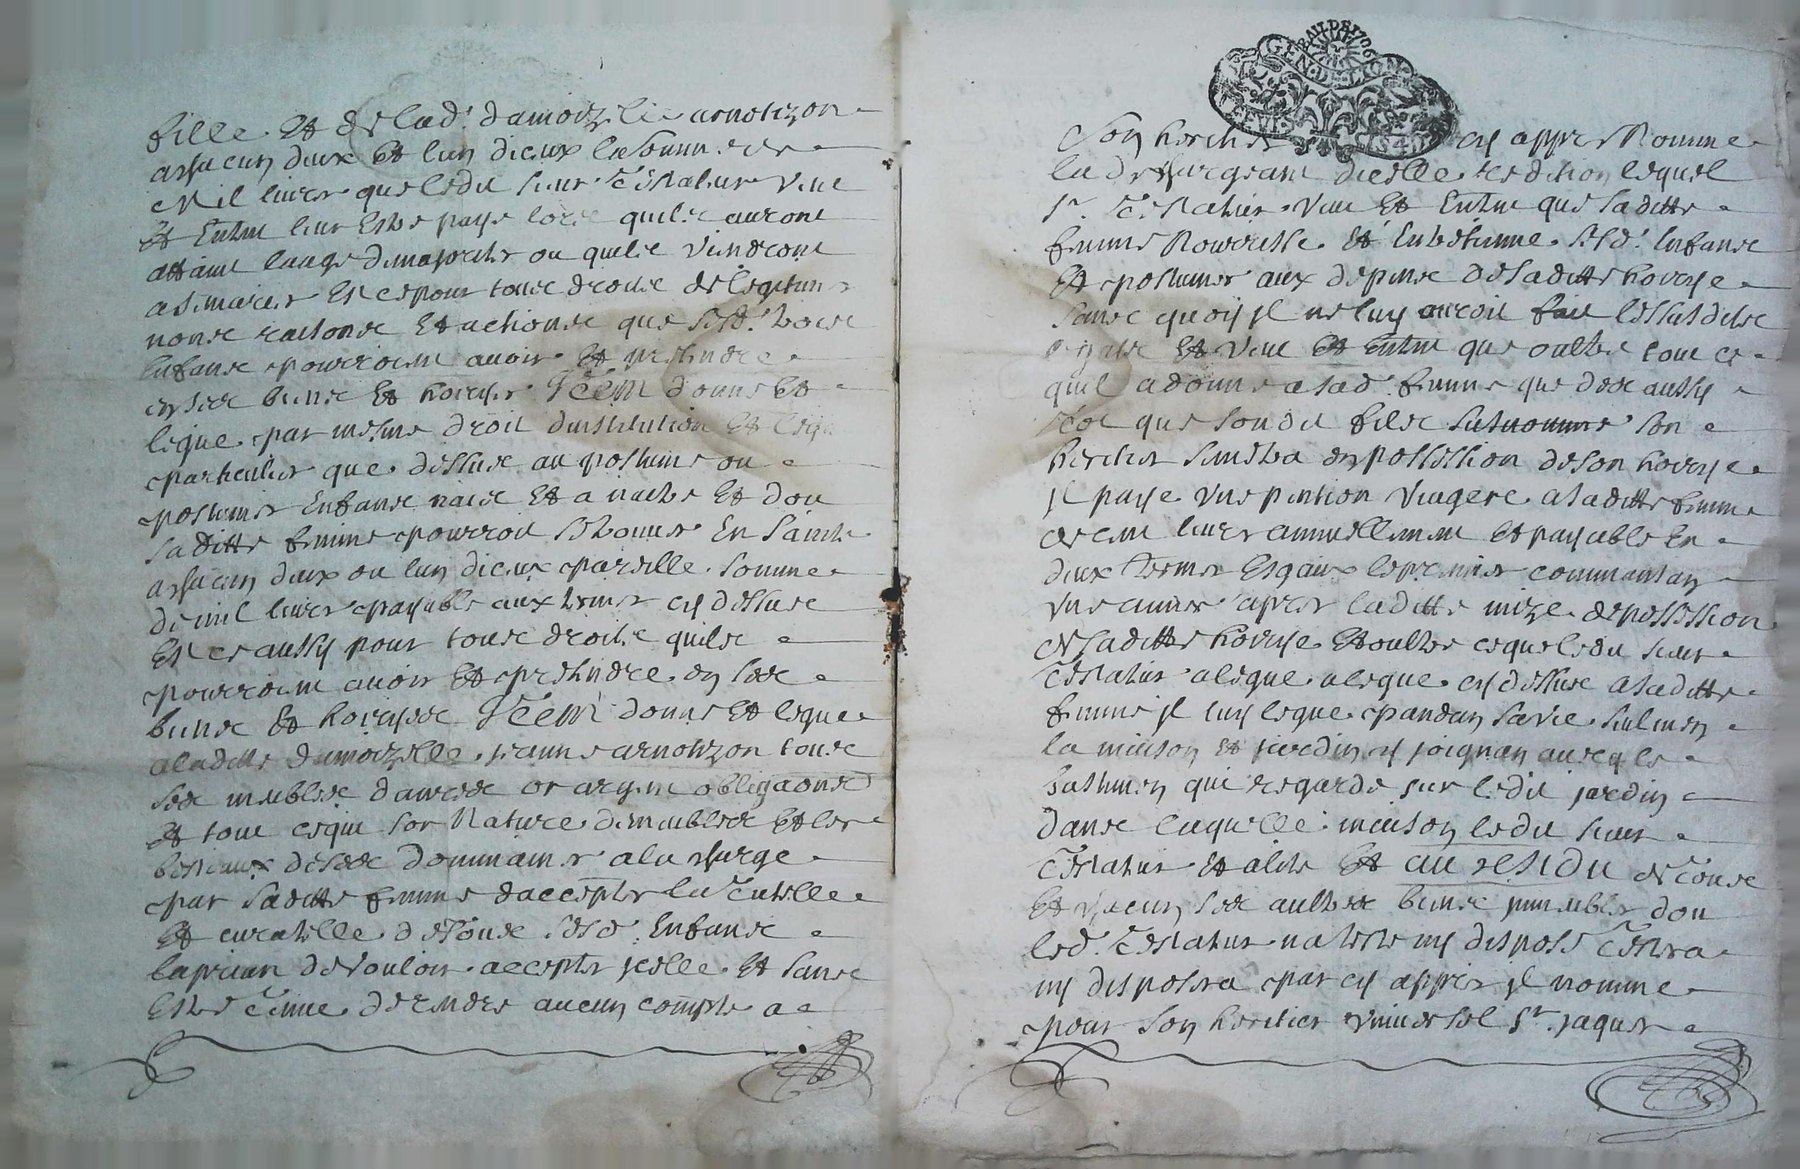 fille et de lad. damoizelle arnouzon
a chacun deux et lun dieux la somme de
mil livres que ledit sieur testateur veut
et entin leur estre paye lors quils auront
attaint laage de majorite ou quils viendront
a se marier et ce pour tous droits de legitime
noms raisons et actions que sesd. trois
enfans pourroint avoir et pretendre
en ses biens et hoirye Item donne et
legue par mesme droit dinstitution et legat
particulier que dessus au postume ou
postumes enfans nais et a naitre et dou
saditte femme pourroit se trouver enceinte
a chacun deux ou lun dieux pareille somme
de mil livres payable aux termes cy dessus
et ce aussy pour tous droits quils
pourroint avoir et pretendre en ses
biens et hoiryes Item donne et legue
a laditte damoizelle jeanne arnouzon tous
ses meubles danrees or argent obligaons
et tout ce qui sor nature de meubles et les
bestiaux de ses dommaines a la charge
par saditte femme daccepter la tutelle
et curatelle de tous sesd. enfans
la priant de vouloir accepter jcelle et sans
estre tenue de rendre aucun compte a
son heritier cy appres nomme
la dechargeant dicelle reddition lequel
sr. testateur veut et entin que saditte
femme nourrisse et entretienne sesd. enfans
et postumes aux depens de saditte hoirye
sans quoy jl ne luy auroit fait lessusdits
legats et veut et entin que oultre tout ce
quil a donne a sad. femme que des aussy
tot que sondit fils susnomme son
heritier sentrera en possession de son hoirye
jl paye une pention viagere a saditte femme
de cent livres annuellement et payable en
deux termes esgaux le premier commansan
une annee apres laditte mize de possession
de saditte hoirye et oultre ce que ledit sieur
testateur a legue a legue cy dessus a saditte
femme jl luy legue pandan sa vie sulmen
la maison et jardin y joignan avecq le
bastimen qui regarde sur ledit jardin
dans laquelle maison ledit sieur
testateur et alite et au residu de tous
et chacun ses aultres biens jmmeubles dou
led. testateur na teste ny dispose testera
ny disposera par cy appres jl nomme
pour son heritier universel sr. jaques
GEN. DE LION